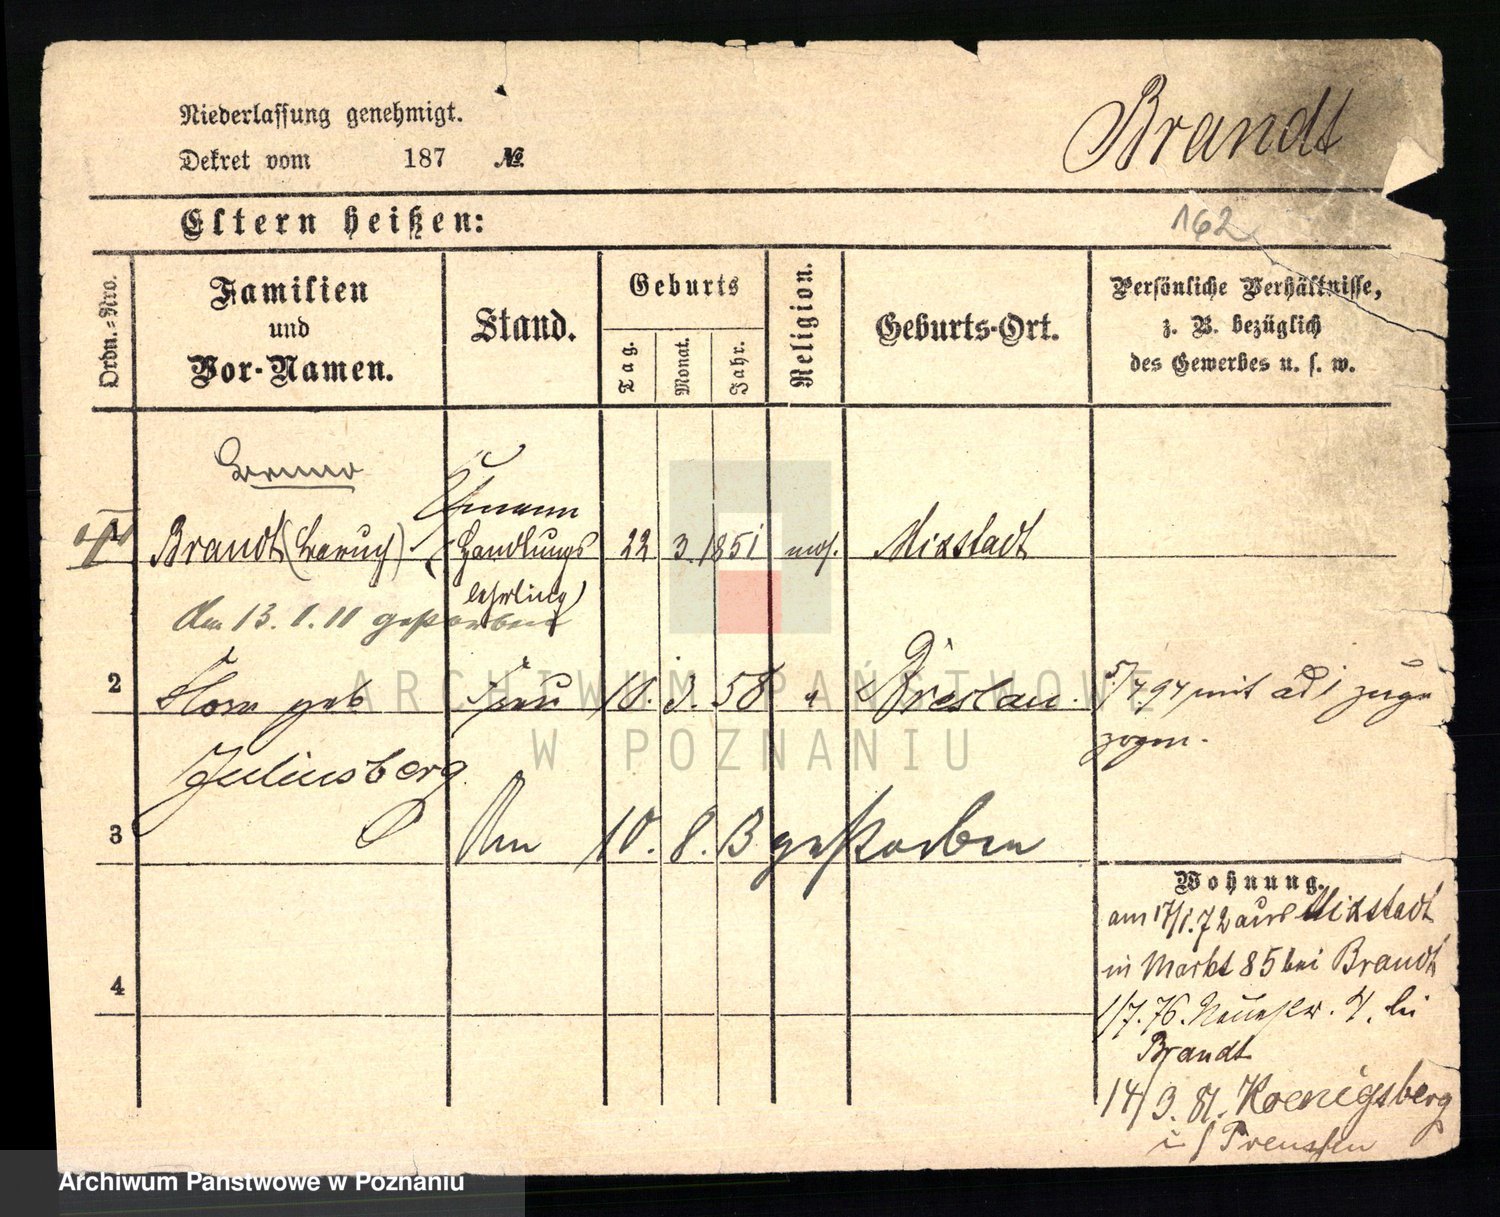 Niederlassung genehmigt.
Brandt
Dekret vom 187 №
Eltern heißen:
162
Ordn.=Nro.
Familien und Vor-Namen.
Stand.
Geburts
Tag.
Monat.
Jahr.
Religion.
Geburts-Ort.
Persönliche Verhältnisse, z. B. bezüglich des Gewerbes u. s. w.
Bruno
1 Brandt (Baruch) (Handlungs 22 3. 1851 mos. Mixstadt
lehrling)
Am 13. 1. 11 gestorben
2 Flora geb Frau 10. 3. 58 " Breslau. 5/7.97 mit ad 1 zuge
zogen.
Juliusberg
3 Am 10. 8. 13 gestorben
Wohnung.
am 17/1.72 aus Mixstadt
in Markt 85 bei Brandt
4
1/7.76. 4. bei
Brandt
14/3.81. Koenigsberg
i/Preussen
ARCHIWUM PAŃSTWOWE
W POZNANIU
Archiwum Państwowe w Poznaniu